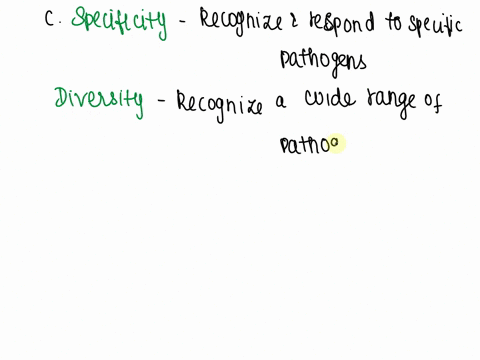 C. Specificity - Recognize & respond to specific
pathogens
Diversity - Recognize a wide range of
patho